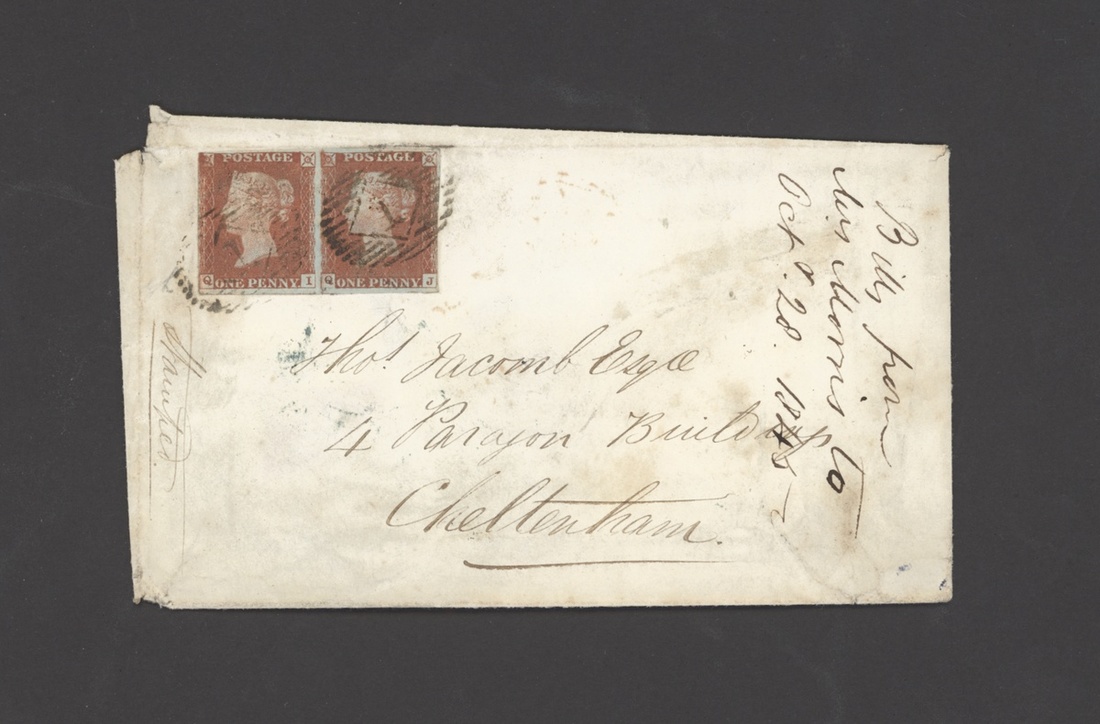 POSTAGE
Q ONE PENNY I
POSTAGE
Q ONE PENNY J
1
Stampted.
Thos. Jacomb Esqre
4 Paragon Buildings
Cheltenham.
Bills from
Mrs Morris to
Octr. 28 1845